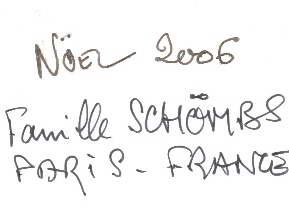 NÖEL 2006
Famille SCHÖMBS
PARiS - FRANCE